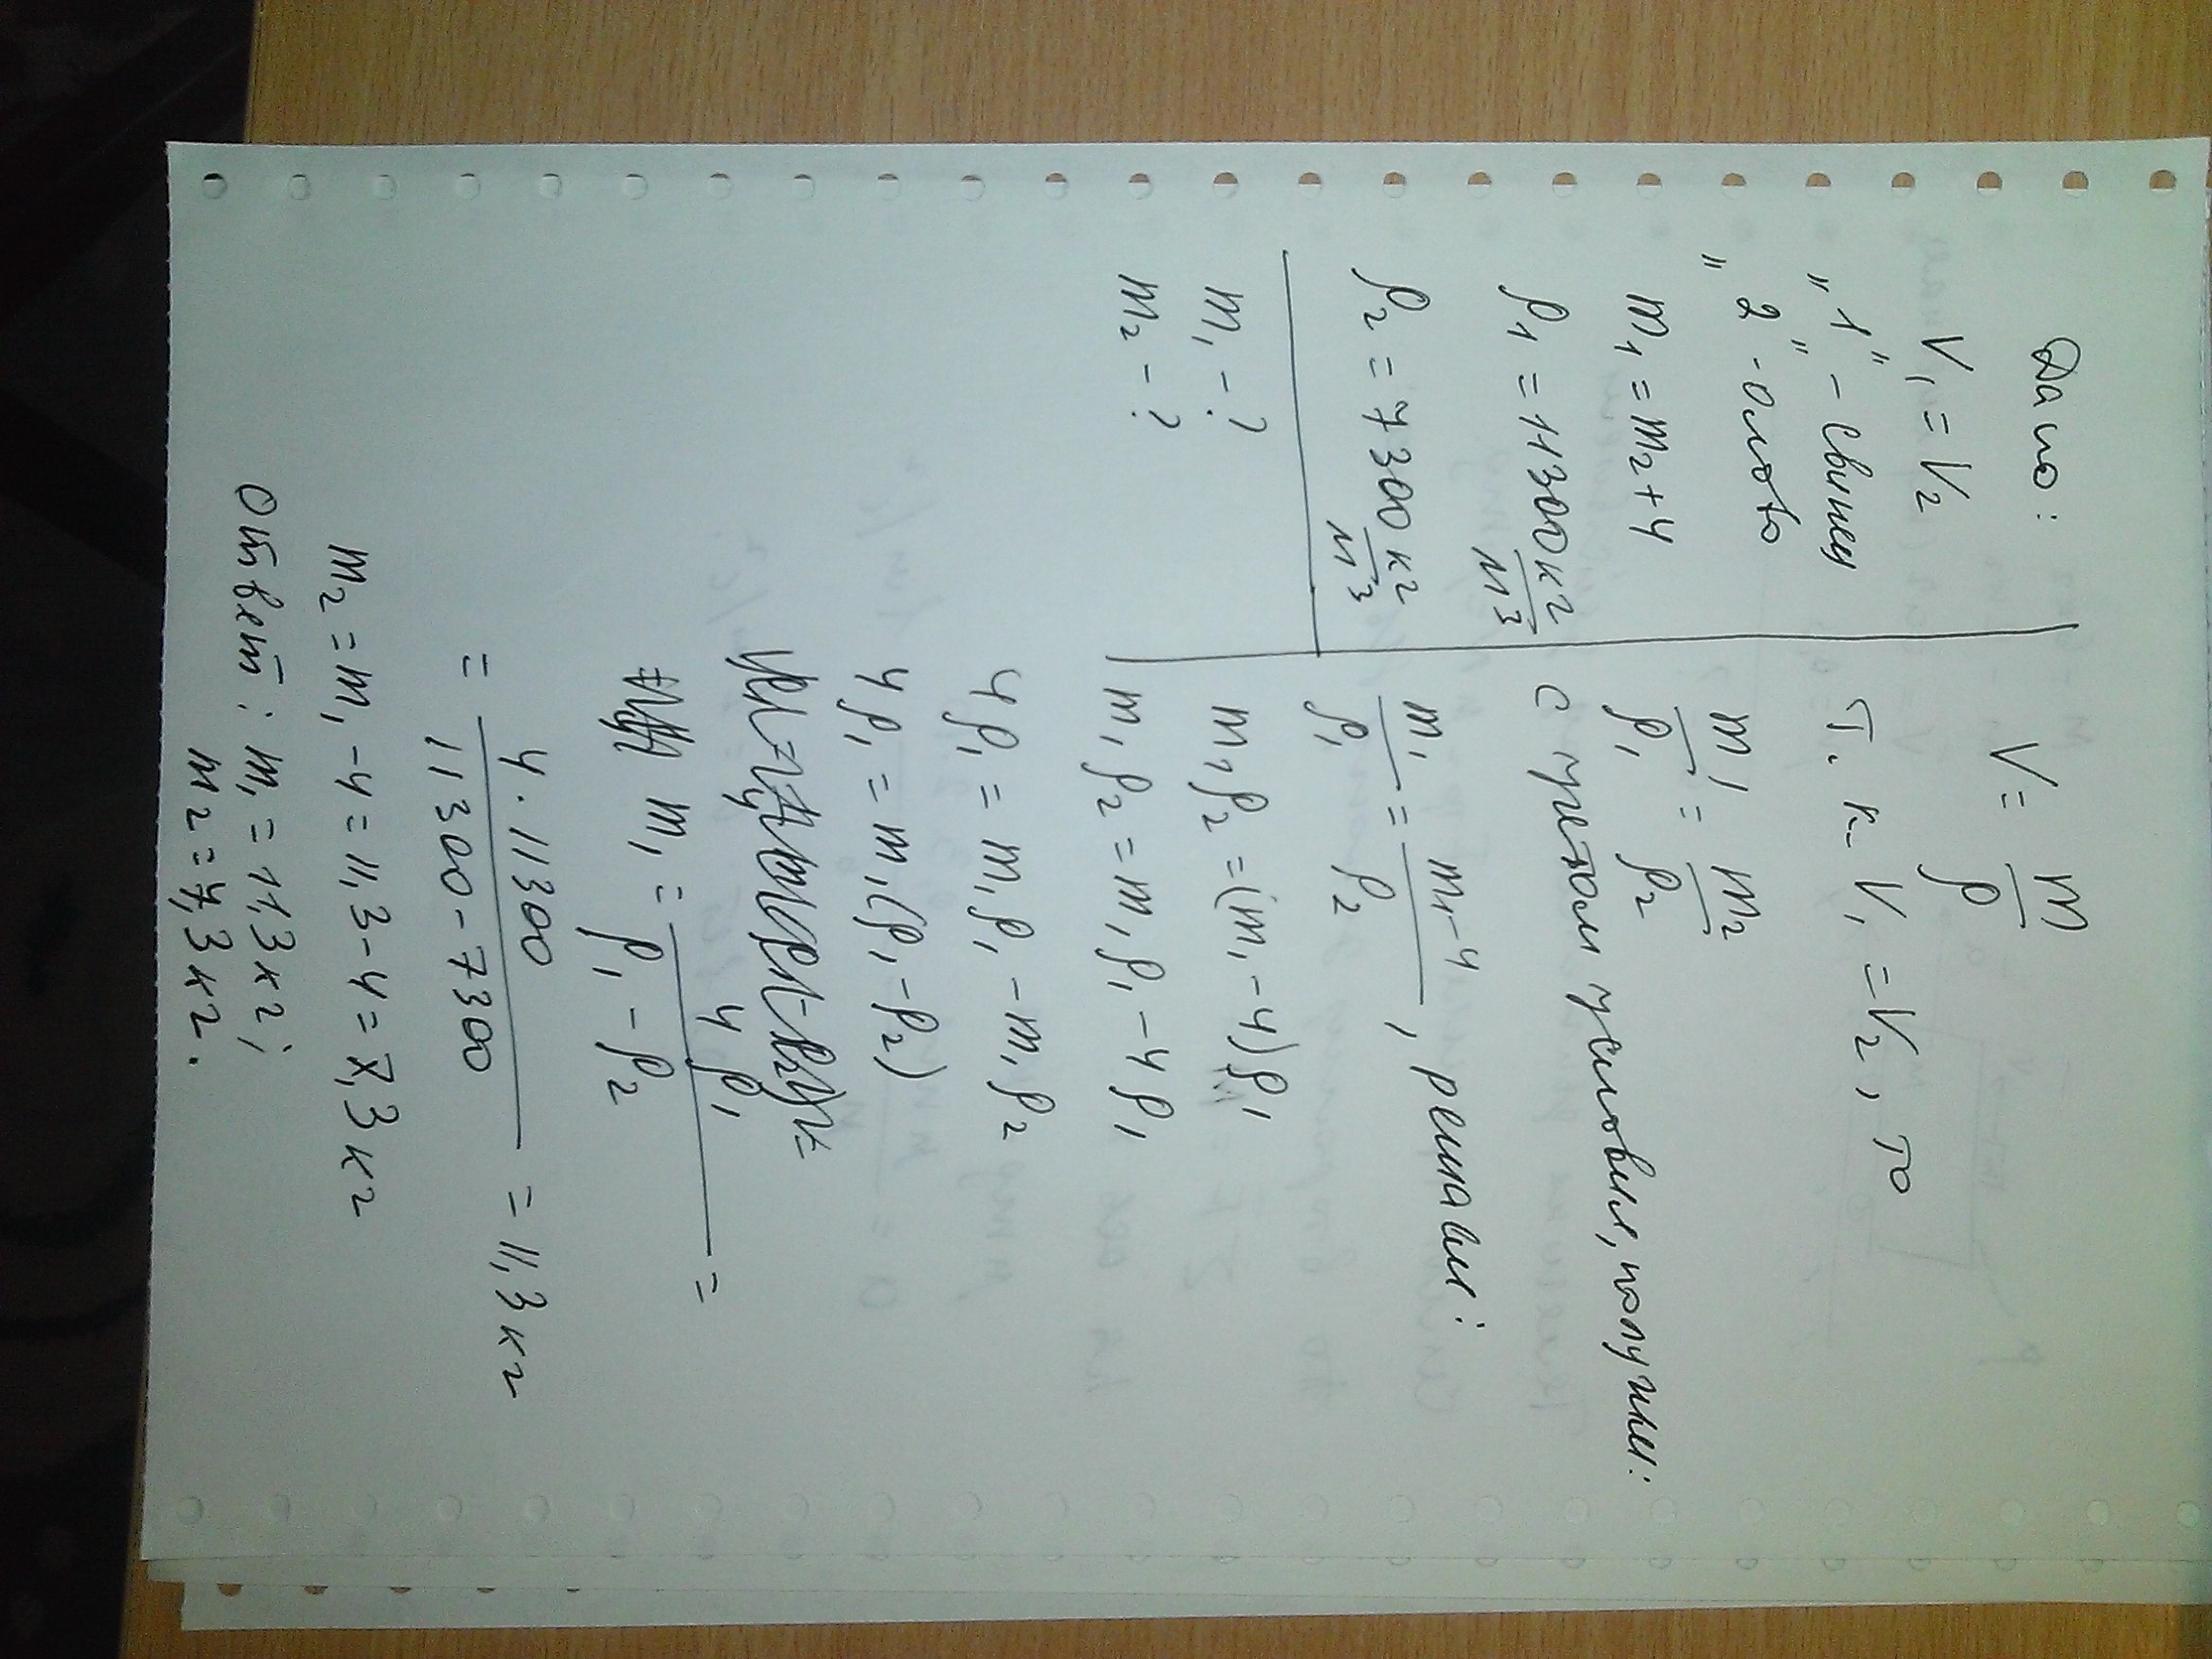 Дано:
V₁ = V₂
"1" - свинец
"2" - олово
m₁ = m₂ + 4
ρ₁ = 11300 кг/м³
ρ₂ = 7300 кг/м³
m₁ - ?
m₂ - ?
V = m/ρ
Т.к. V₁ = V₂, то
m₁/ρ₁ = m₂/ρ₂
С учетом условия, получим:
m₁/ρ₁ = (m₁-4)/ρ₂, решаем:
m₁ρ₂ = (m₁ - 4)ρ₁
m₁ρ₂ = m₁ρ₁ - 4ρ₁
4ρ₁ = m₁ρ₁ - m₁ρ₂
4ρ₁ = m₁(ρ₁ - ρ₂)
m₁ = 4ρ₁/(ρ₁ - ρ₂) =
= 4·11300/(11300 - 7300) = 11,3 кг
m₂ = m₁ - 4 = 11,3 - 4 = 7,3 кг
Ответ: m₁ = 11,3 кг;
m₂ = 7,3 кг.